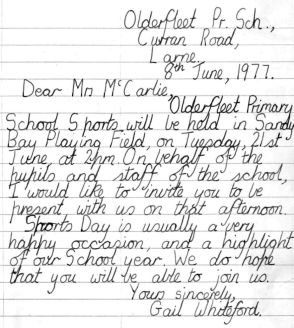 Olderfleet Pr. Sch.,
Curran Road,
Larne,
8th June, 1977.
Dear Mr McCarlie,
Olderfleet Primary
School Sports will be held in Sandy
Bay Playing Field, on Tuesday, 21st
June, at 2pm. On behalf of the
pupils and staff of the school,
I would like to invite you to be
present with us on that afternoon.
Sports Day is usually a very
happy occasion, and a highlight
of our School year. We do hope
that you will be able to join us.
Yours sincerely,
Gail Whiteford.